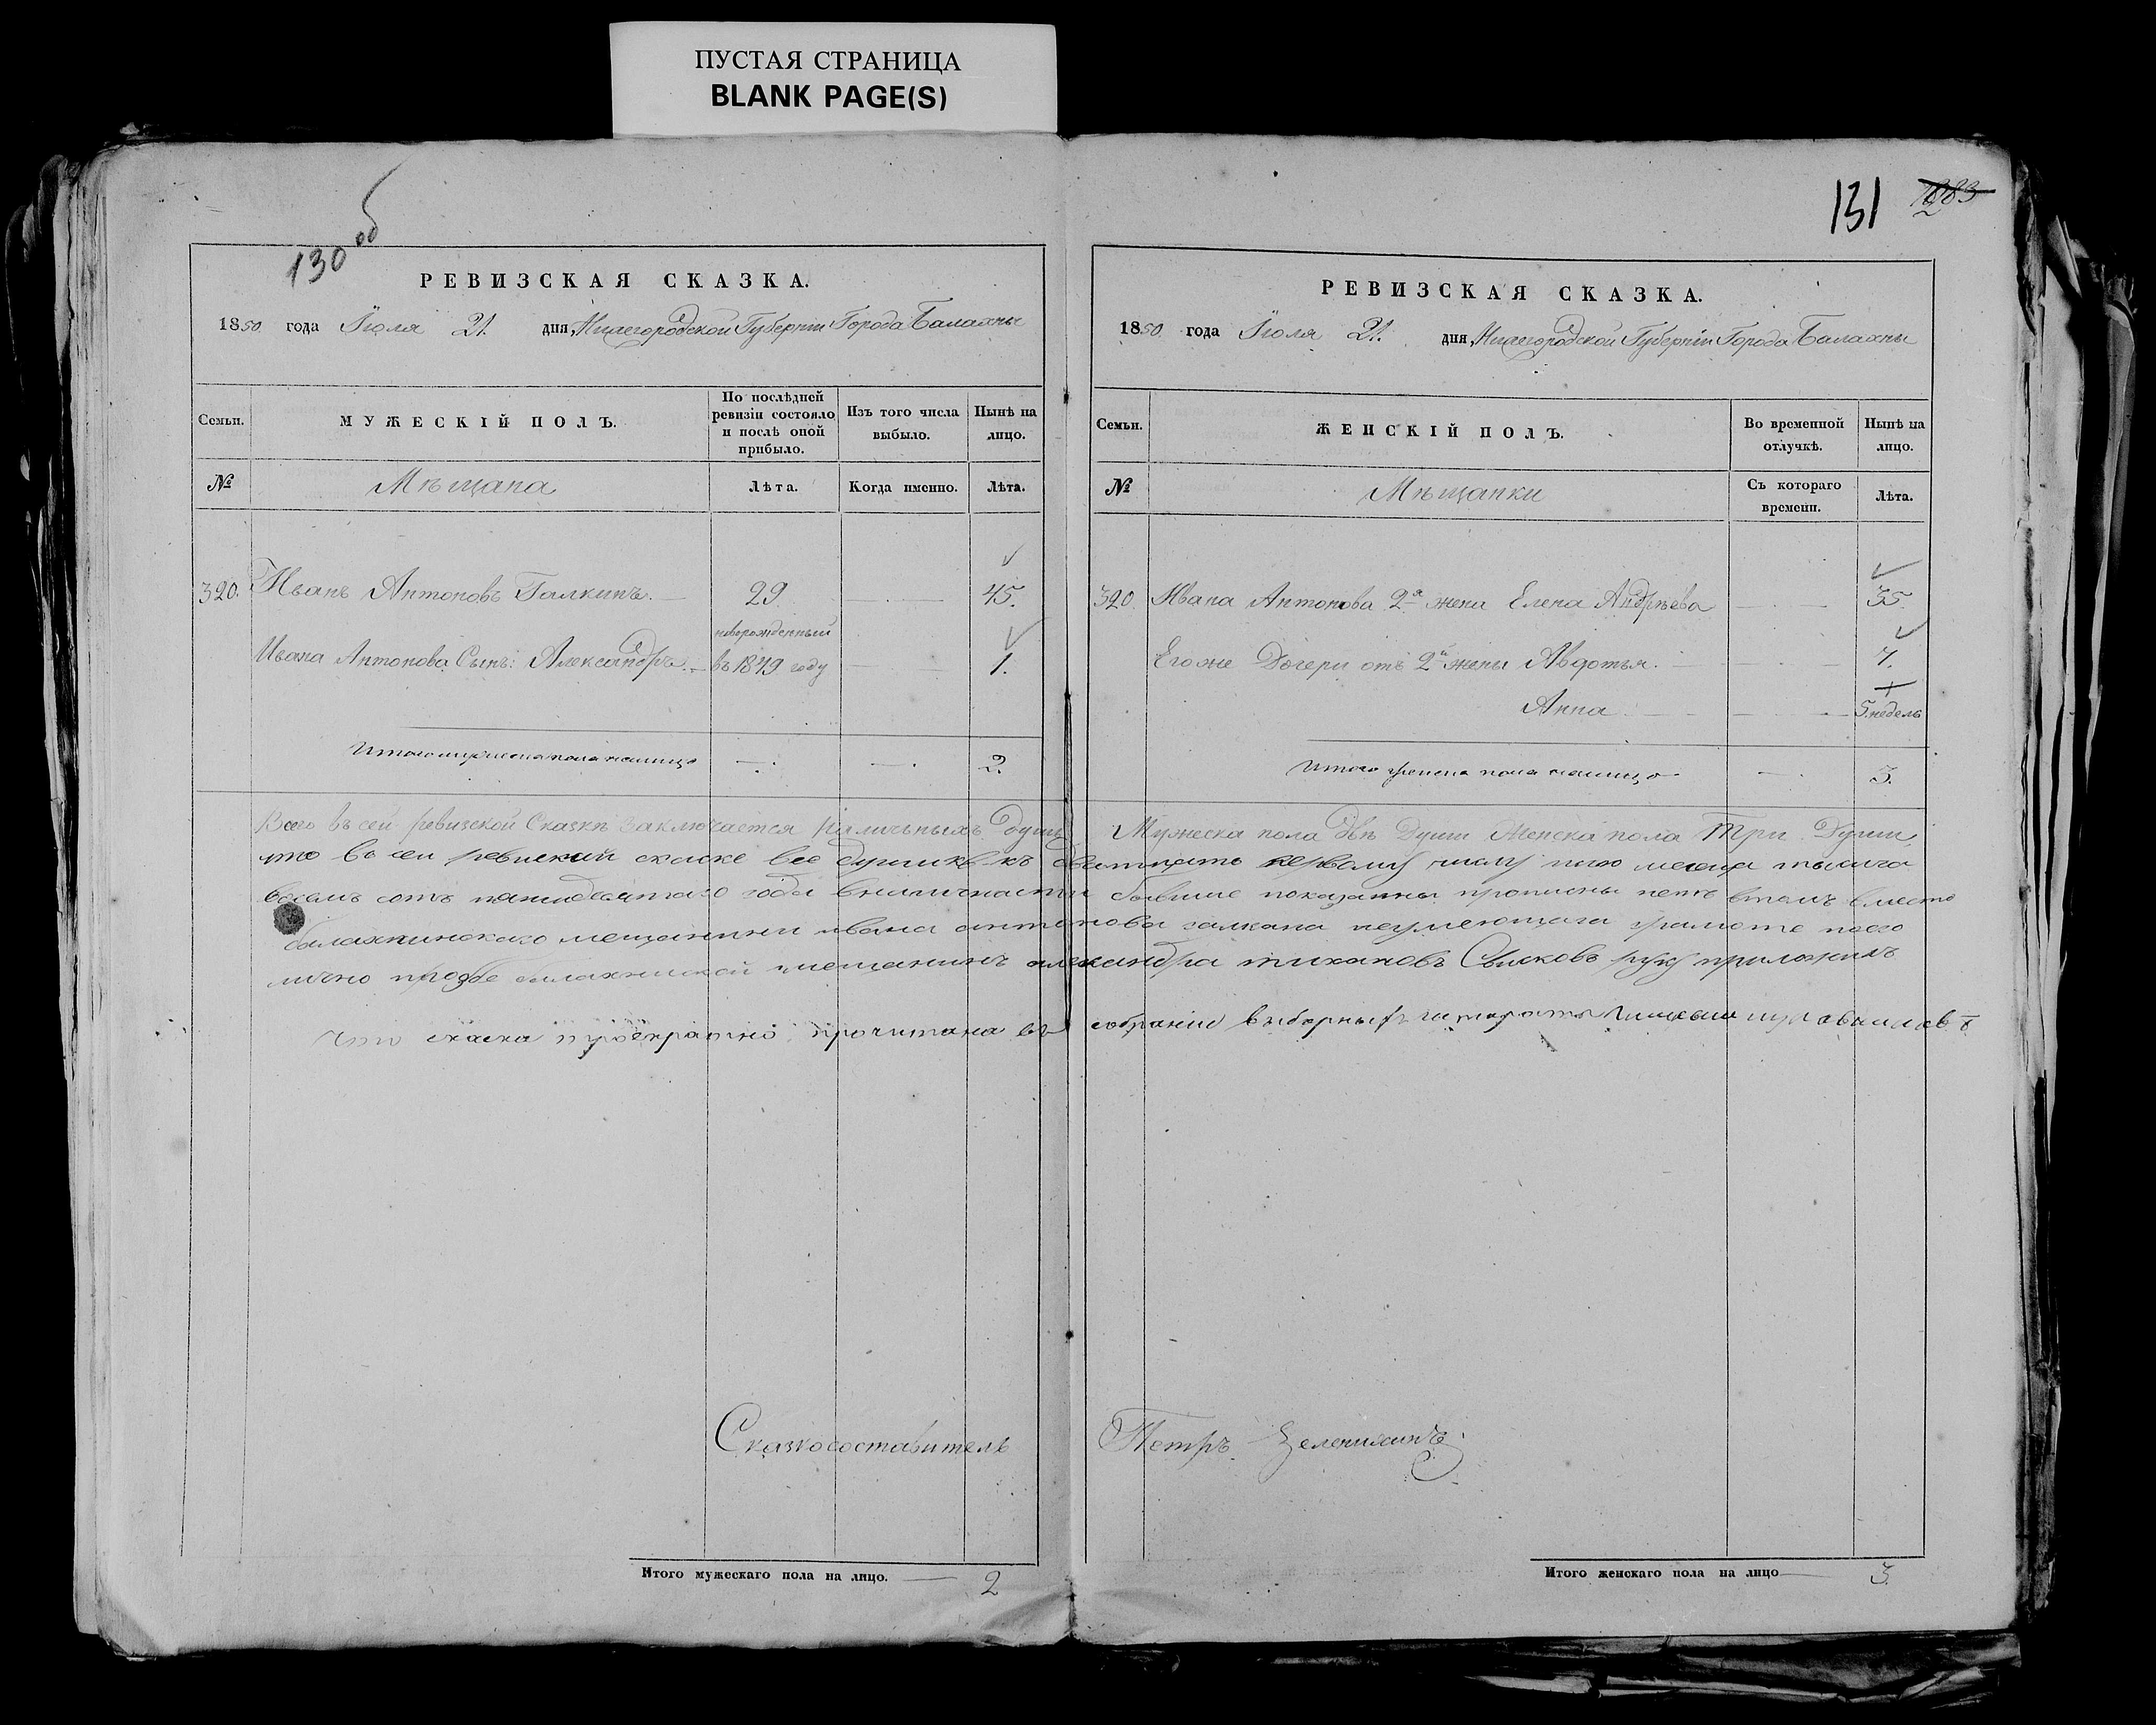 ПУСТАЯ СТРАНИЦА
BLANK PAGE(S)
130 об
РЕВИЗСКАЯ СКАЗКА.
1850 года Іюля 21. дня, Нижегородской Губерніи Города Балахны
Семьи. МУЖЕСКІЙ ПОЛЪ. По послѣдней ревизіи состояло и послѣ оной прибыло. Изъ того числа выбыло. Нынѣ на лицо.
№ Мѣщана Лѣта. Когда именно. Лѣта.
320. Иванъ Антоновъ Галкинъ. 29 45.
новорожденный
Ивана Антонова Сынъ: Александръ. въ 1849 году 1.
Итого мужеска пола налицо 2.
131
РЕВИЗСКАЯ СКАЗКА.
1850 года Іюля 21. дня, Нижегородской Губерніи Города Балахны
Семьи. ЖЕНСКІЙ ПОЛЪ. Во временной отлучкѣ. Нынѣ на лицо.
№ Мѣщанки Съ котораго времени. Лѣта.
320. Ивана Антонова 2я жена Елена Андрѣева 35.
Его же Дочери отъ 2й жены Авдотья. 7.
Анна 5 недель
Итого женска пола налицо 3.
Всего въ сей ревизской Сказкѣ заключается наличныхъ душъ Мужеска пола двѣ Души Женска пола Три Души,
что в сей ревиской скаске все души къ дватцать первому числу июля месеца тысеча
восемь сотъ пятидесятаго года вналичности бывшие показанны прописны нетъ втомъ вместо
балахнинскаго мещанина ивана антонова галкина неумеющаго грамоте поего
лично прозбе балахниской мещанинъ александра тихановъ руку приложилъ
что скаска троекратно прочитана въ собрание выборныхъ
Сказкосоставитель Петръ Зеленихинъ
Итого мужескаго пола на лицо. 2
Итого женскаго пола на лицо 3.